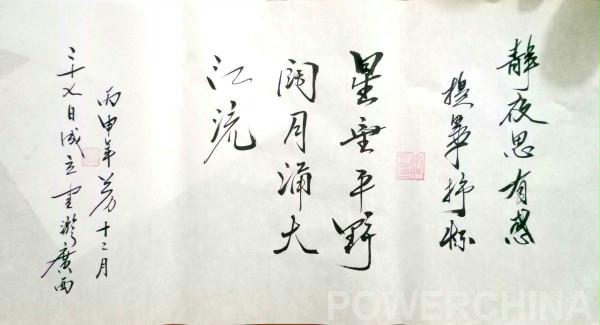 静夜思有感
提筆抒怀
星垂平野
阔月涌大
江流
丙申年十二月
日成立書於廣西
POWERCHINA